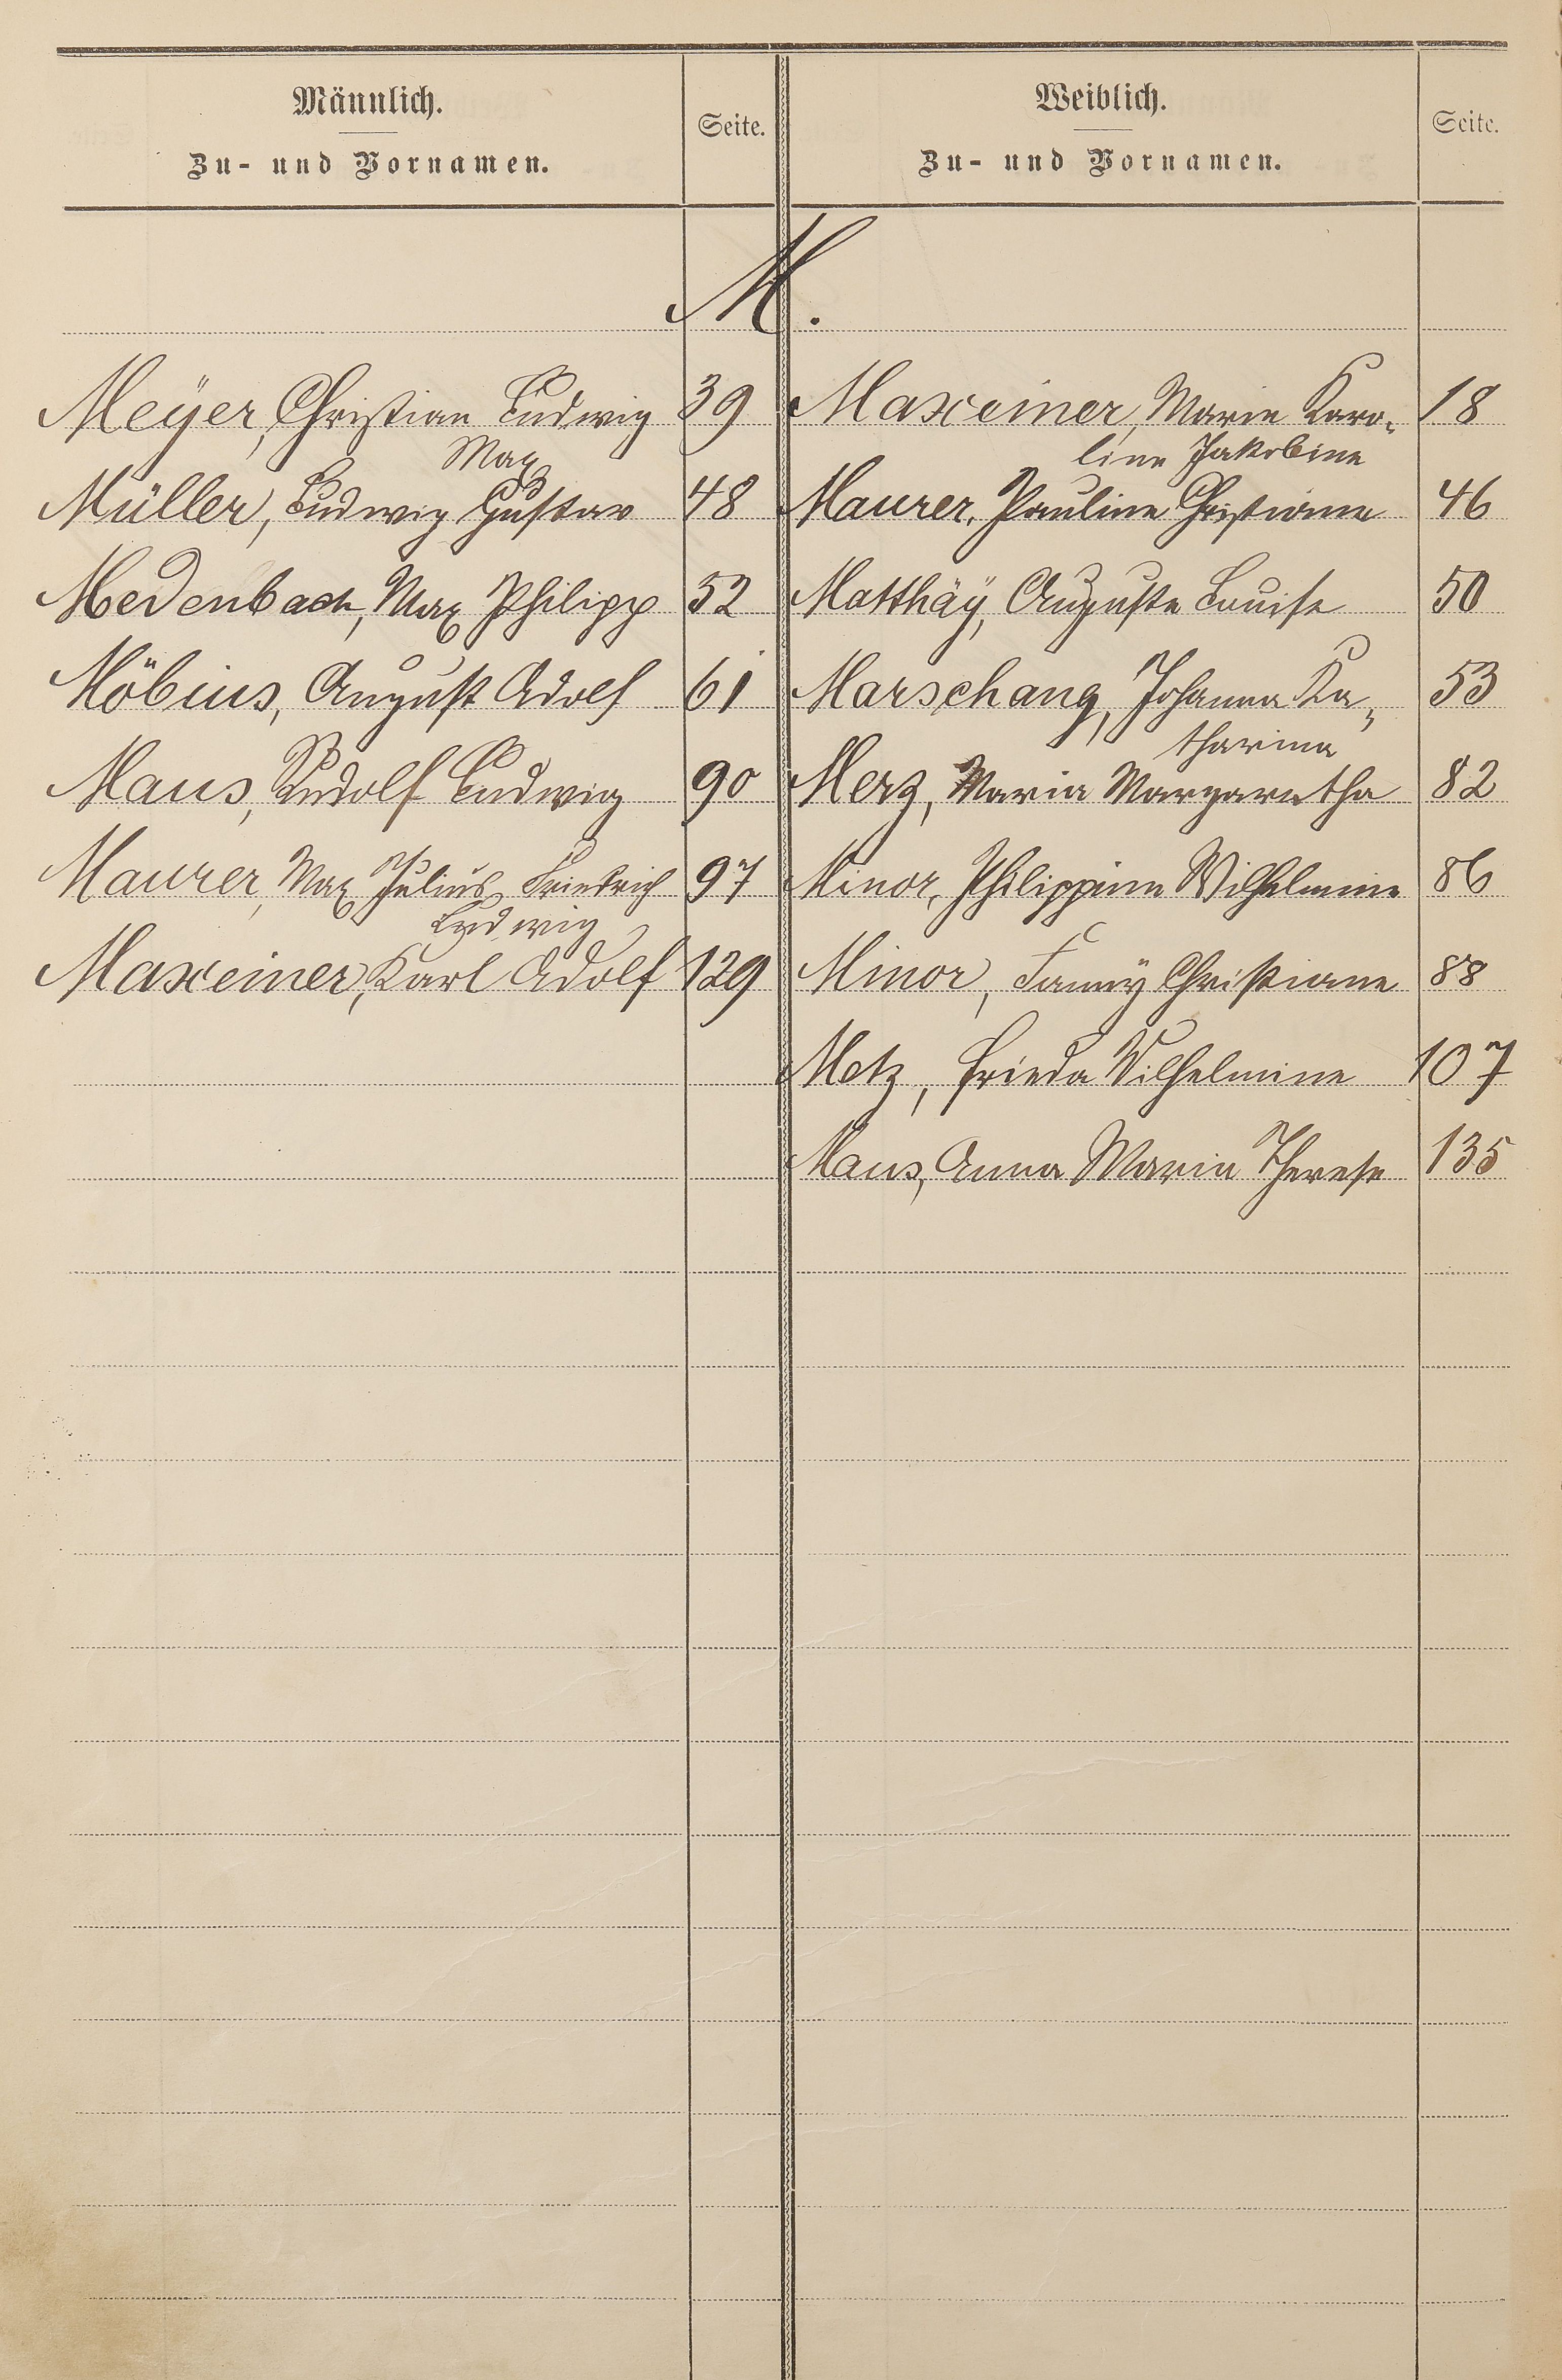 Männlich.
Zu- und Vornamen.
Seite.
Weiblich.
Zu- und Vornamen.
Seite.
M.
Meÿer, Christian Ludwig 39
Max
Müller, Ludwig Gustav 48
Medenbach, Max Philipp 52
Möbius, August Adolf 61
Maus, Rudolf Ludwig 90
Maurer, Max Julius Friedrich 97
Ludwig
Maxeiner, Karl Adolf 129
Maxeiner, Marie Karo- 18
line Jakobine
Maurer, Pauline Christiane 46
Matthäÿ, Auguste Louise 50
Marschang, Johanna Ka- 53
tharina
Merz, Maria Margaretha 82
Minor, Philippine Wilhelmine 86
Minor, Fannÿ Christiane 88
Metz, Frieda Wilhelmine 107
Maus, Anna Maria Therese 135